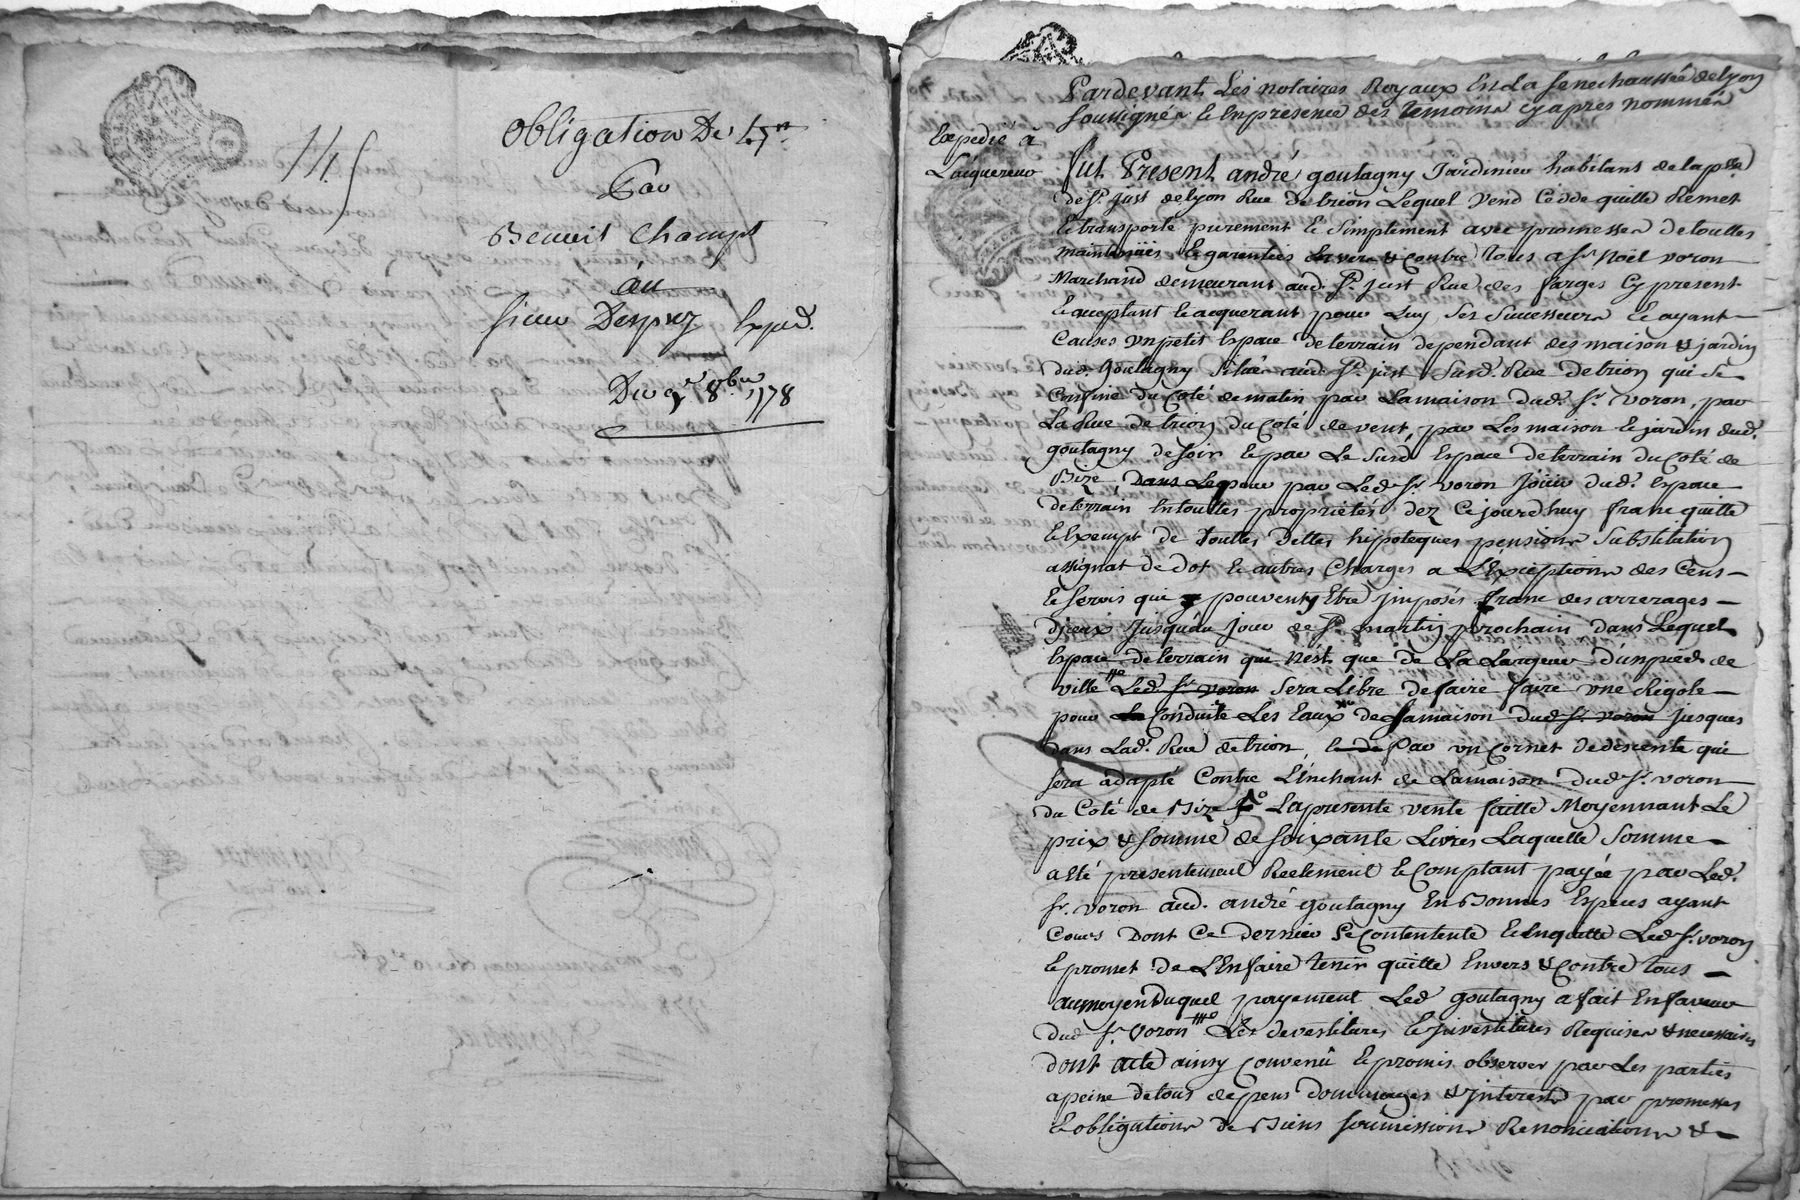 145
Obligation De
Par
Benoist Champt
au
sieur Desprez Exped.
Du 9e 8bre 1778
Expedié à
L'acquereur
Pardevant Les notaires Royaux En La senechaussée de lyon
soussignés & Enpresence des temoins cy apres nommés
fut Present andré goutagny Jardinier habitant de la psse
de St. just de lyon Rue de trion Lequel vend Cédde quitte Remet
Et transporte purement & Simplement avec promesses de touttes
maintenües & garenties Envers & contre tous a sr Noël voron
Marchand demeurant aud. St. just Rue des farges Cy present
& acceptant & acquerant pour Luy Ses Successeurs & ayant
Causes un petit Espace de terrain dependant des maison & jardin
dud. Goutagny Situés aud. St. just Surd. Rue de trion qui se
Confine du Coté de matin par La maison dud. Sr. voron, par
La Rue de trion du Coté de vent, par Les maison & jardin dud.
goutagny de soir & par Le Surd. Espace de terrain du Coté de
Bize Dans Lequel par Led. Sr. voron Joüir dud. Espace
de terrain En touttes proprietés dez Cejourdhuy franc quitte
& Exempt de touttes dettes hipoteques pensions Substitution
assignat de dot & autres Charges a L'éxception des Cens
& servis qui y peuvent Etre jmposés franc des arrerages
d'jceux jusqu'au jour de St. martin prochain dans Lequel
Espace de terrain qui N'ést que de La Largeur d'un pied de
ville Led. Sr. voron Sera Libre de faire faire une Rigole
pour Conduire Les Eaux de La maison dud. Sr. voron jusques
dans Lad. Rue de trion, & de Par un Cornet de descente qui
sera adapté Contre L'Enchant de La maison dud. Sr. voron
du Coté de Bize La presente vente faitte Moyennant Le
prix & somme de soixante Livres Laquelle Somme
a Eté presentement Réelement & Comptant payée par Led.
sr. voron aud. andré goutagny En Bonnes Especes ayant
Cours Dont Ce dernier se Contentente & En quitte Led. Sr. voron
& promet de L'En faire tenir quitte Envers & Contre tous
au moyen Duquel payement Led. goutagny a fait En faveur
dud. Sr. voron Les devestitures & jnvestitures Requises & necessaires
dont acte ainsy Convenû & promis observer par Les parties
a peine de tous depens dommages & jnterests par promesses
& obligations de Biens soumissions Renonciations &